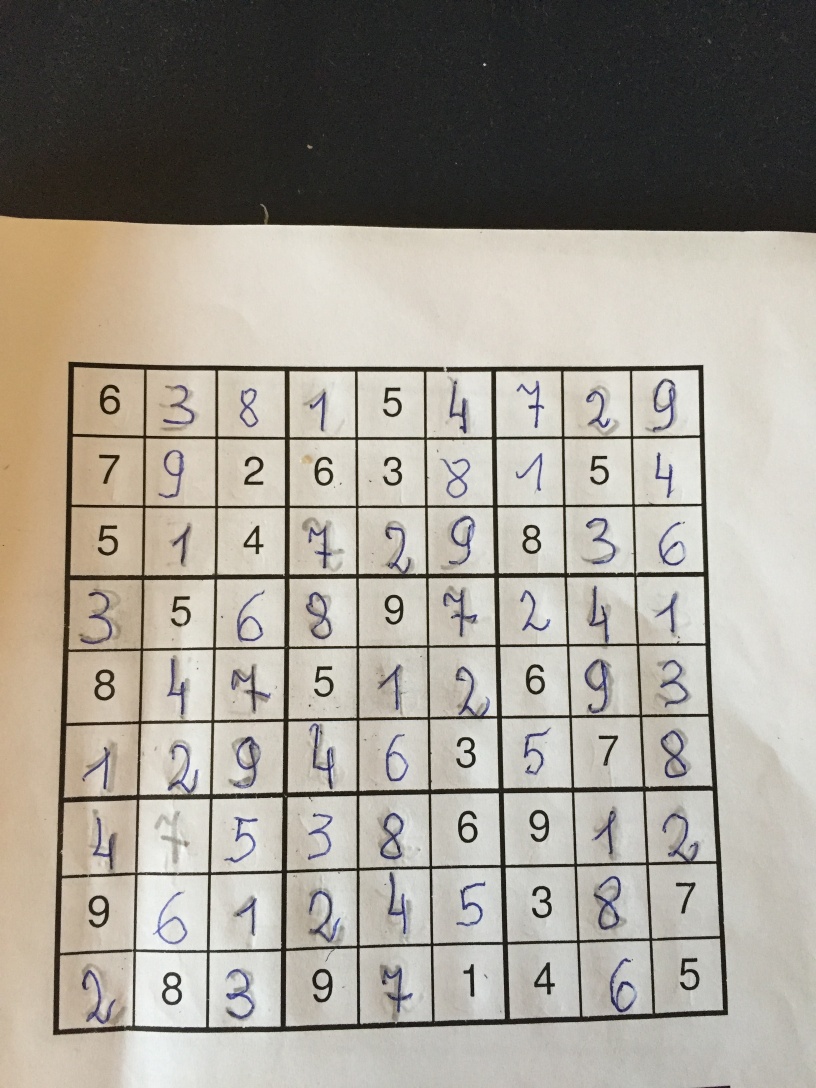 6 3 8 1 5 4 7 2 9
7 9 2 6 3 8 1 5 4
5 1 4 7 2 9 8 3 6
3 5 6 8 9 7 2 4 1
8 4 7 5 1 2 6 9 3
1 2 9 4 6 3 5 7 8
4 7 5 3 8 6 9 1 2
9 6 1 2 4 5 3 8 7
2 8 3 9 7 1 4 6 5